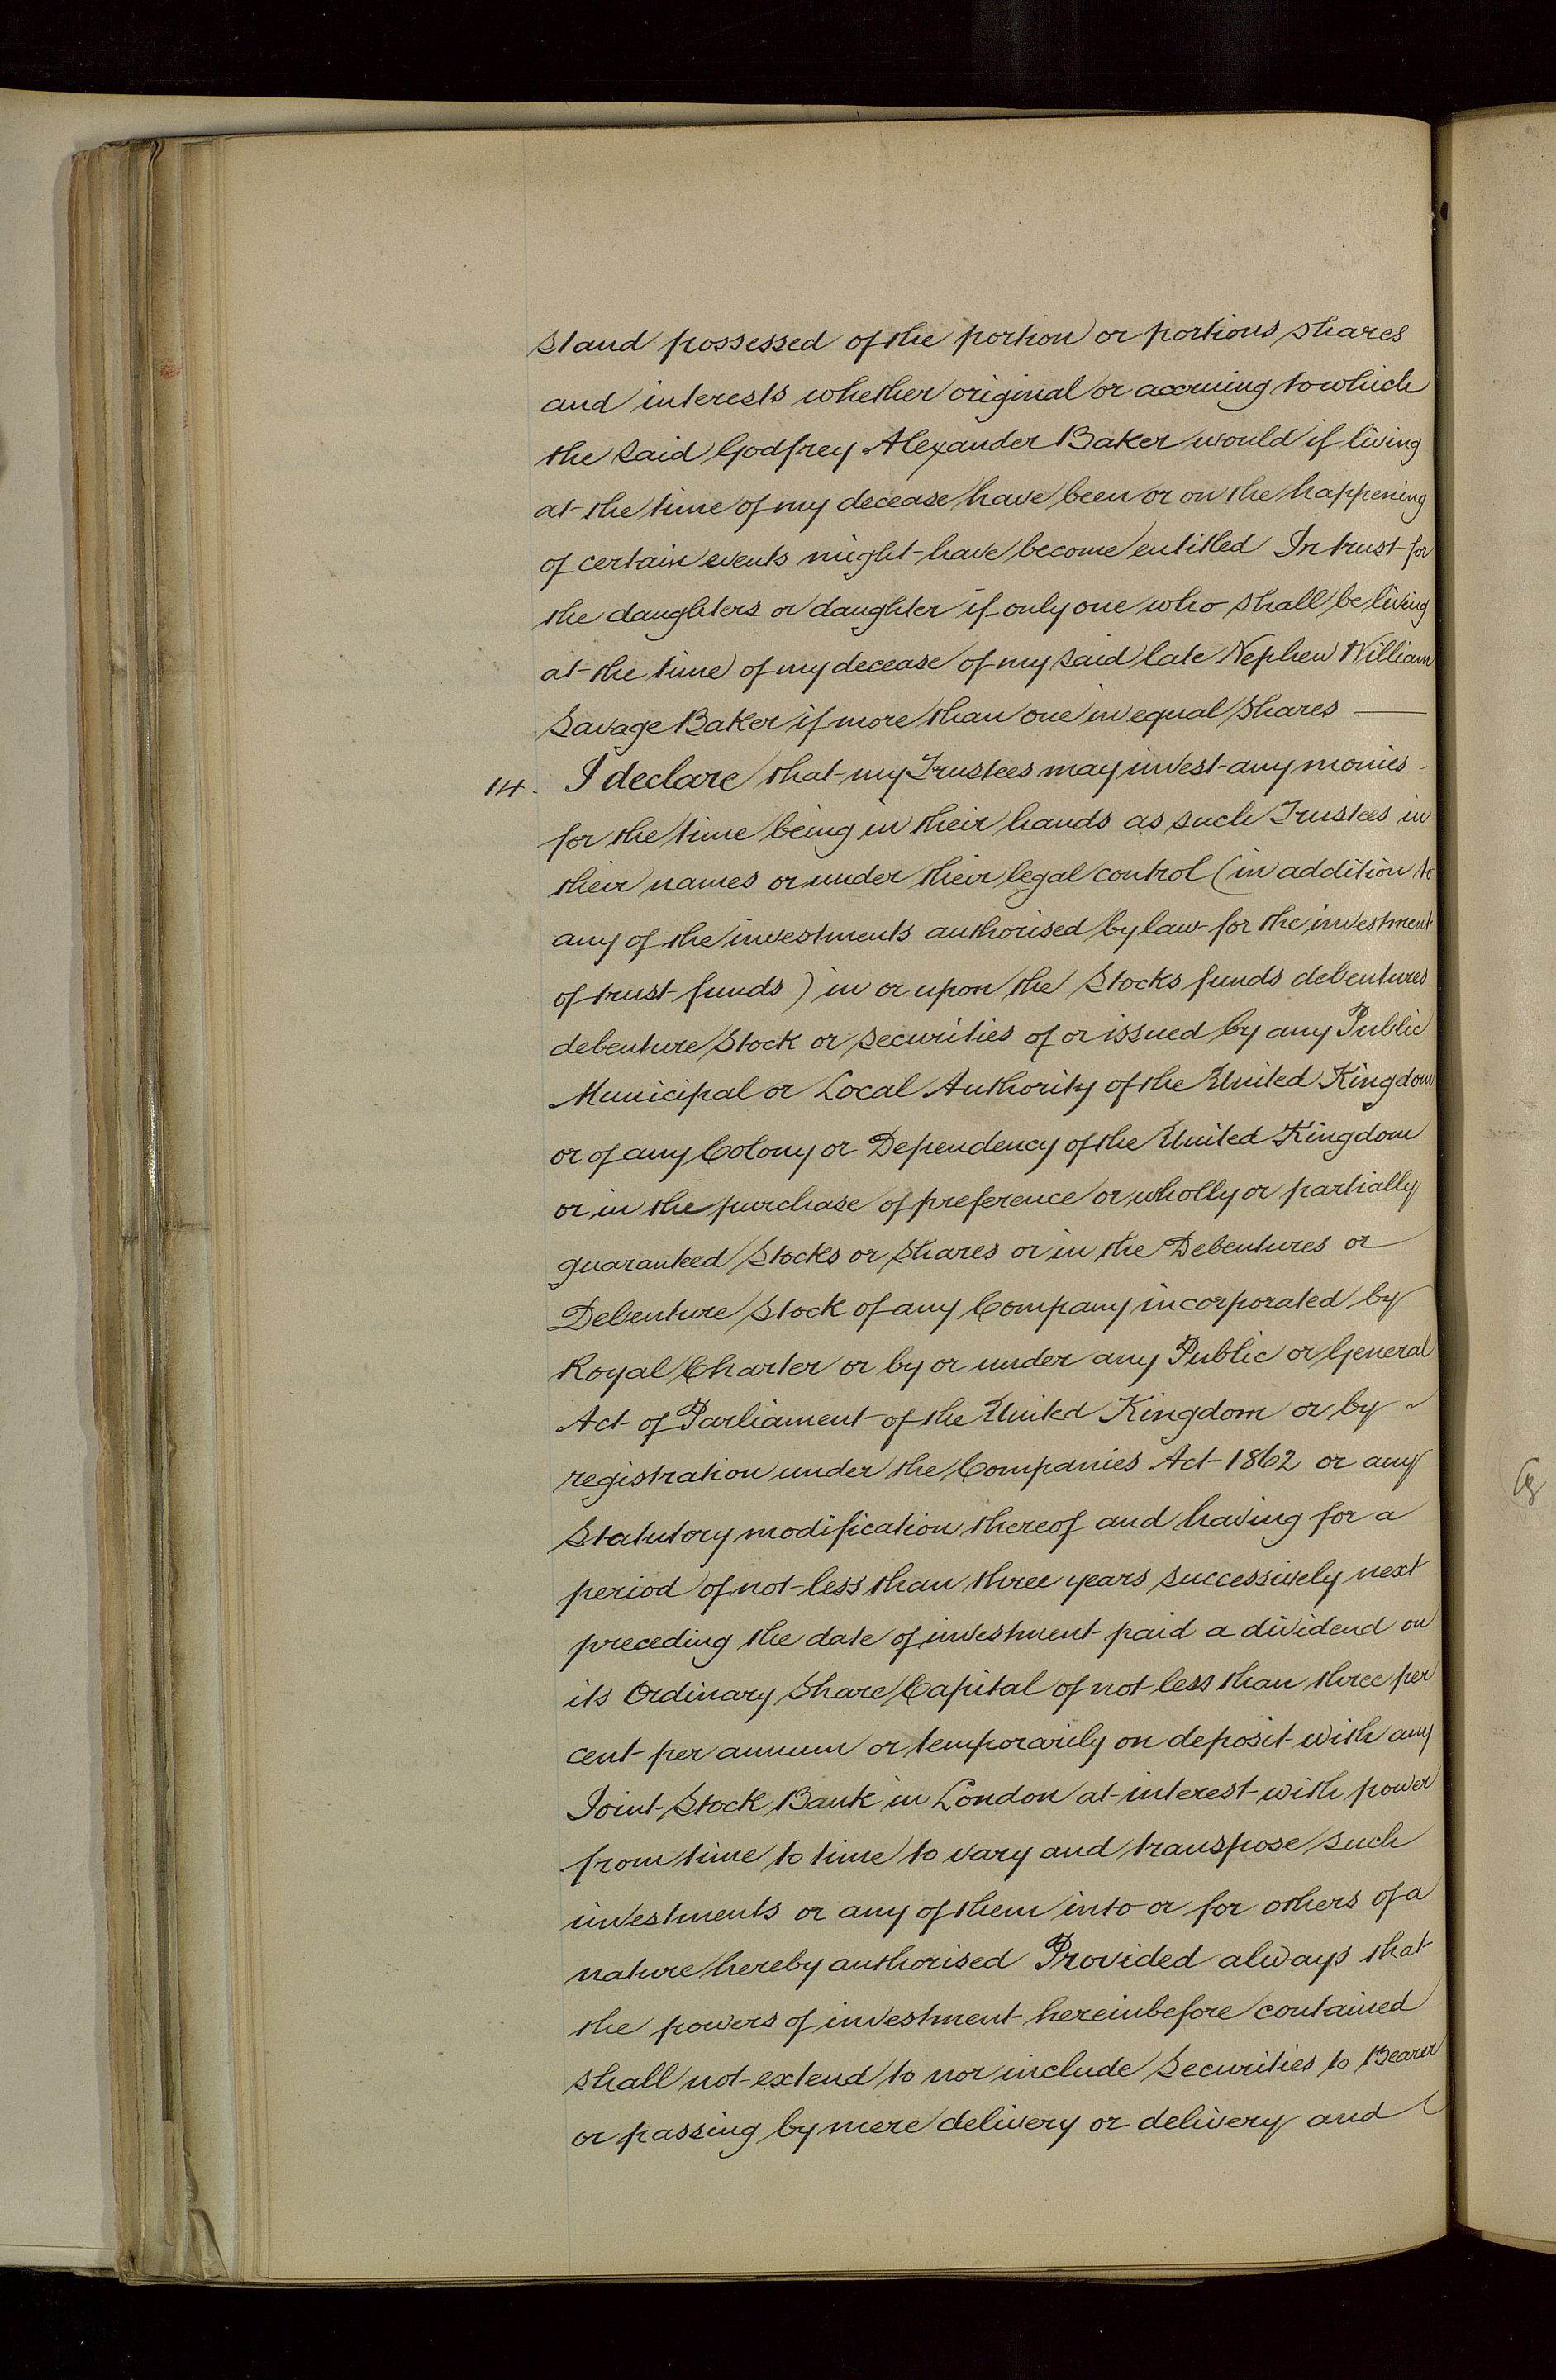 stand possessed of the portion or portions shares
and interests whether original or accruing to which
the said Godfrey Alexander Baker would if living
at the time of my decease have been or on the happening
of certain events might have become entitled In trust for
the daughters or daughter if only one who shall be living
at the time of my decease of my said late Nephew William
Savage Baker if more than one in equal shares —
14. I declare that my Trustees may invest any monies
for the time being in their hands as such Trustees in
their names or under their legal control (in addition to
any of the investments authorised by law for the investment
of trust funds) in or upon the Stocks funds debentures
debenture stock or securities of or issued by any Public
Municipal or Local Authority of the United Kingdom
or of any Colony or Dependency of the United Kingdom
or in the purchase of preference or wholly or partially
guaranteed Stocks or Shares or in the Debentures or
Debenture Stock of any Company incorporated by
Royal Charter or by or under any Public or General
Act of Parliament of the United Kingdom or by
registration under the Companies Act 1862 or any
Statutory modification thereof and having for a
period of not less than three years successively next
preceding the date of investment paid a dividend on
its Ordinary Share Capital of not less than three per
cent per annum or temporarily on deposit with any
Joint Stock Bank in London at interest with power
from time to time to vary and transpose such
investments or any of them into or for others of a
nature hereby authorised Provided always that
the powers of investment hereinbefore contained
shall not extend to nor include Securities to Bearer
or passing by mere delivery or delivery and